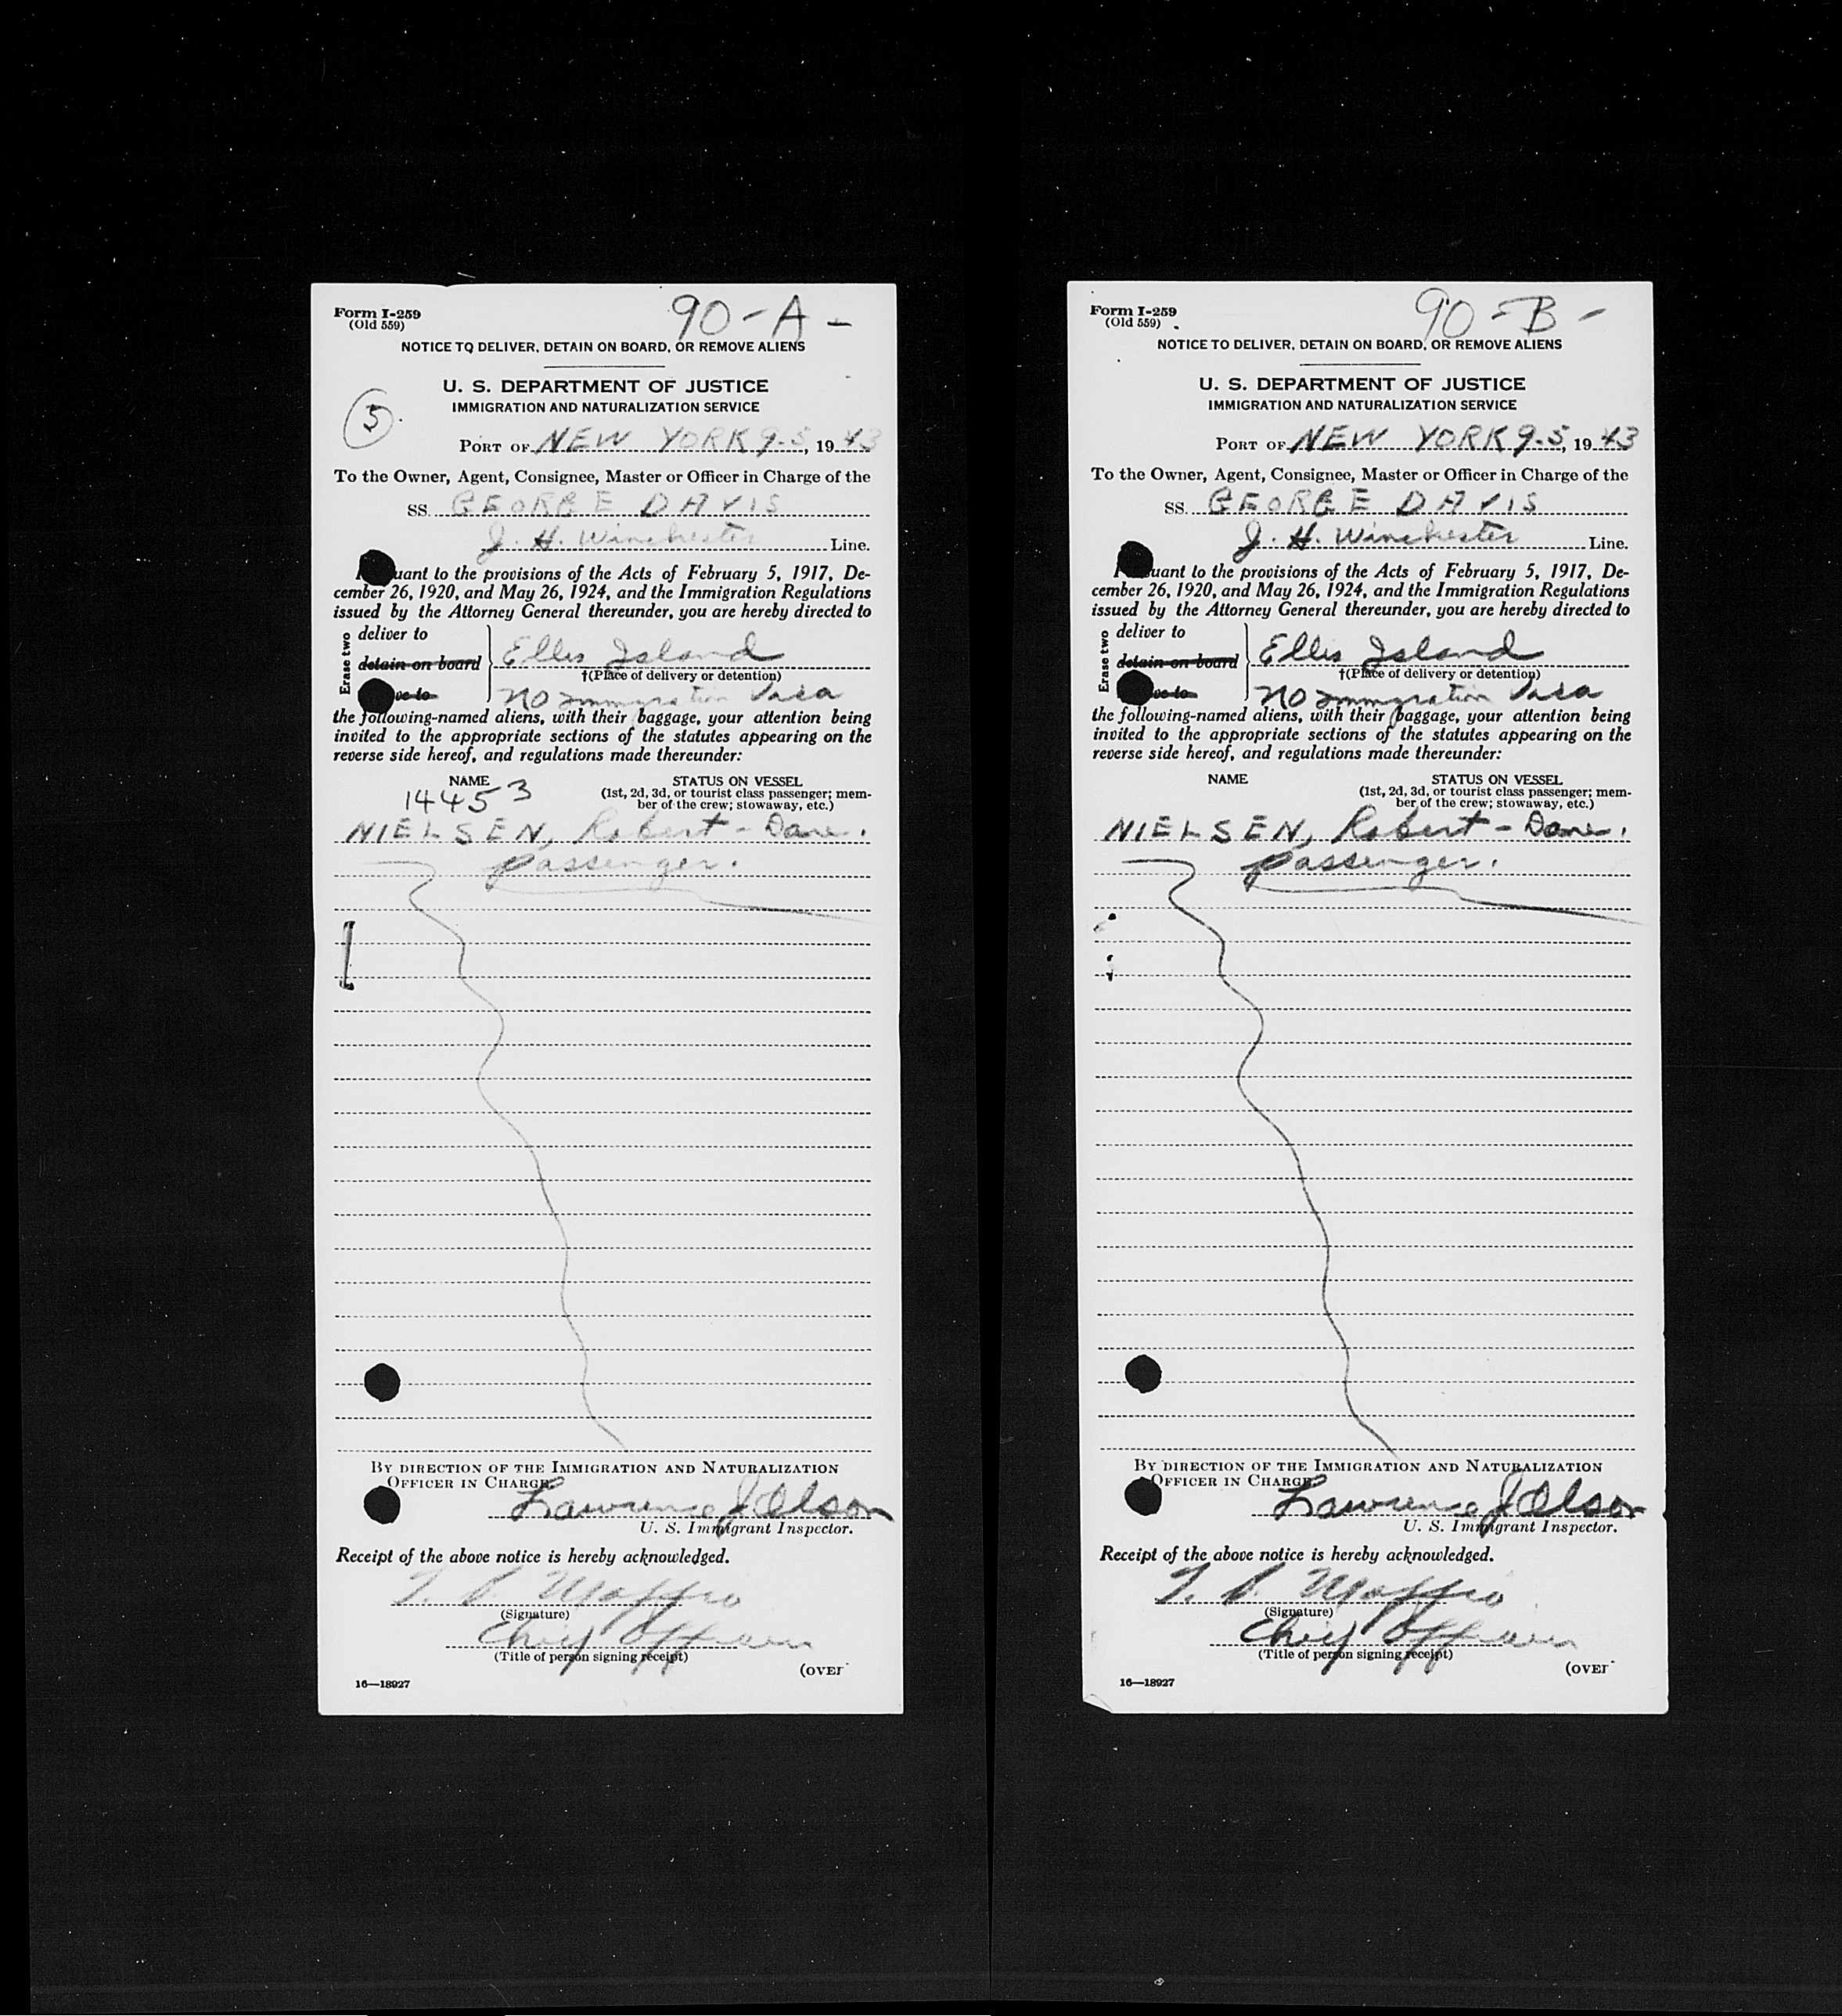 Form I-259
(Old 559)
90-A-
NOTICE TO DELIVER, DETAIN ON BOARD, OR REMOVE ALIENS
U. S. DEPARTMENT OF JUSTICE
IMMIGRATION AND NATURALIZATION SERVICE
5
PORT OF NEW YORK 9-5, 19 43
To the Owner, Agent, Consignee, Master or Officer in Charge of the
SS. GEORGE DAVIS
J. H. Winchester Line.
uant to the provisions of the Acts of February 5, 1917, De-
cember 26, 1920, and May 26, 1924, and the Immigration Regulations
issued by the Attorney General thereunder, you are hereby directed to
Erase two
deliver to
detain on board
ve to
Ellis Island
†(Place of delivery or detention)
No immigration Visa
the following-named aliens, with their baggage, your attention being
invited to the appropriate sections of the statutes appearing on the
reverse side hereof, and regulations made thereunder:
NAME
STATUS ON VESSEL
14453
(1st, 2d, 3d, or tourist class passenger; mem-
ber of the crew; stowaway, etc.)
NIELSEN, Robert - Dane.
Passenger.
BY DIRECTION OF THE IMMIGRATION AND NATURALIZATION
OFFICER IN CHARGE
Lawrence J Olson
U. S. Immigrant Inspector.
Receipt of the above notice is hereby acknowledged.
(Signature)
Chief Officer
(Title of person signing receipt)
(OVER
16—18927
Form I-259
(Old 559)
90-B-
NOTICE TO DELIVER, DETAIN ON BOARD, OR REMOVE ALIENS
U. S. DEPARTMENT OF JUSTICE
IMMIGRATION AND NATURALIZATION SERVICE
PORT OF NEW YORK 9-5, 19 43
To the Owner, Agent, Consignee, Master or Officer in Charge of the
SS. GEORGE DAVIS
J. H. Winchester Line.
uant to the provisions of the Acts of February 5, 1917, De-
cember 26, 1920, and May 26, 1924, and the Immigration Regulations
issued by the Attorney General thereunder, you are hereby directed to
Erase two
deliver to
detain on board
ve to
Ellis Island
†(Place of delivery or detention)
No immigration Visa
the following-named aliens, with their baggage, your attention being
invited to the appropriate sections of the statutes appearing on the
reverse side hereof, and regulations made thereunder:
NAME
STATUS ON VESSEL
(1st, 2d, 3d, or tourist class passenger; mem-
ber of the crew; stowaway, etc.)
NIELSEN, Robert - Dane.
Passenger.
BY DIRECTION OF THE IMMIGRATION AND NATURALIZATION
OFFICER IN CHARGE
Lawrence J Olson
U. S. Immigrant Inspector.
Receipt of the above notice is hereby acknowledged.
(Signature)
Chief Officer
(Title of person signing receipt)
(OVER
16—18927